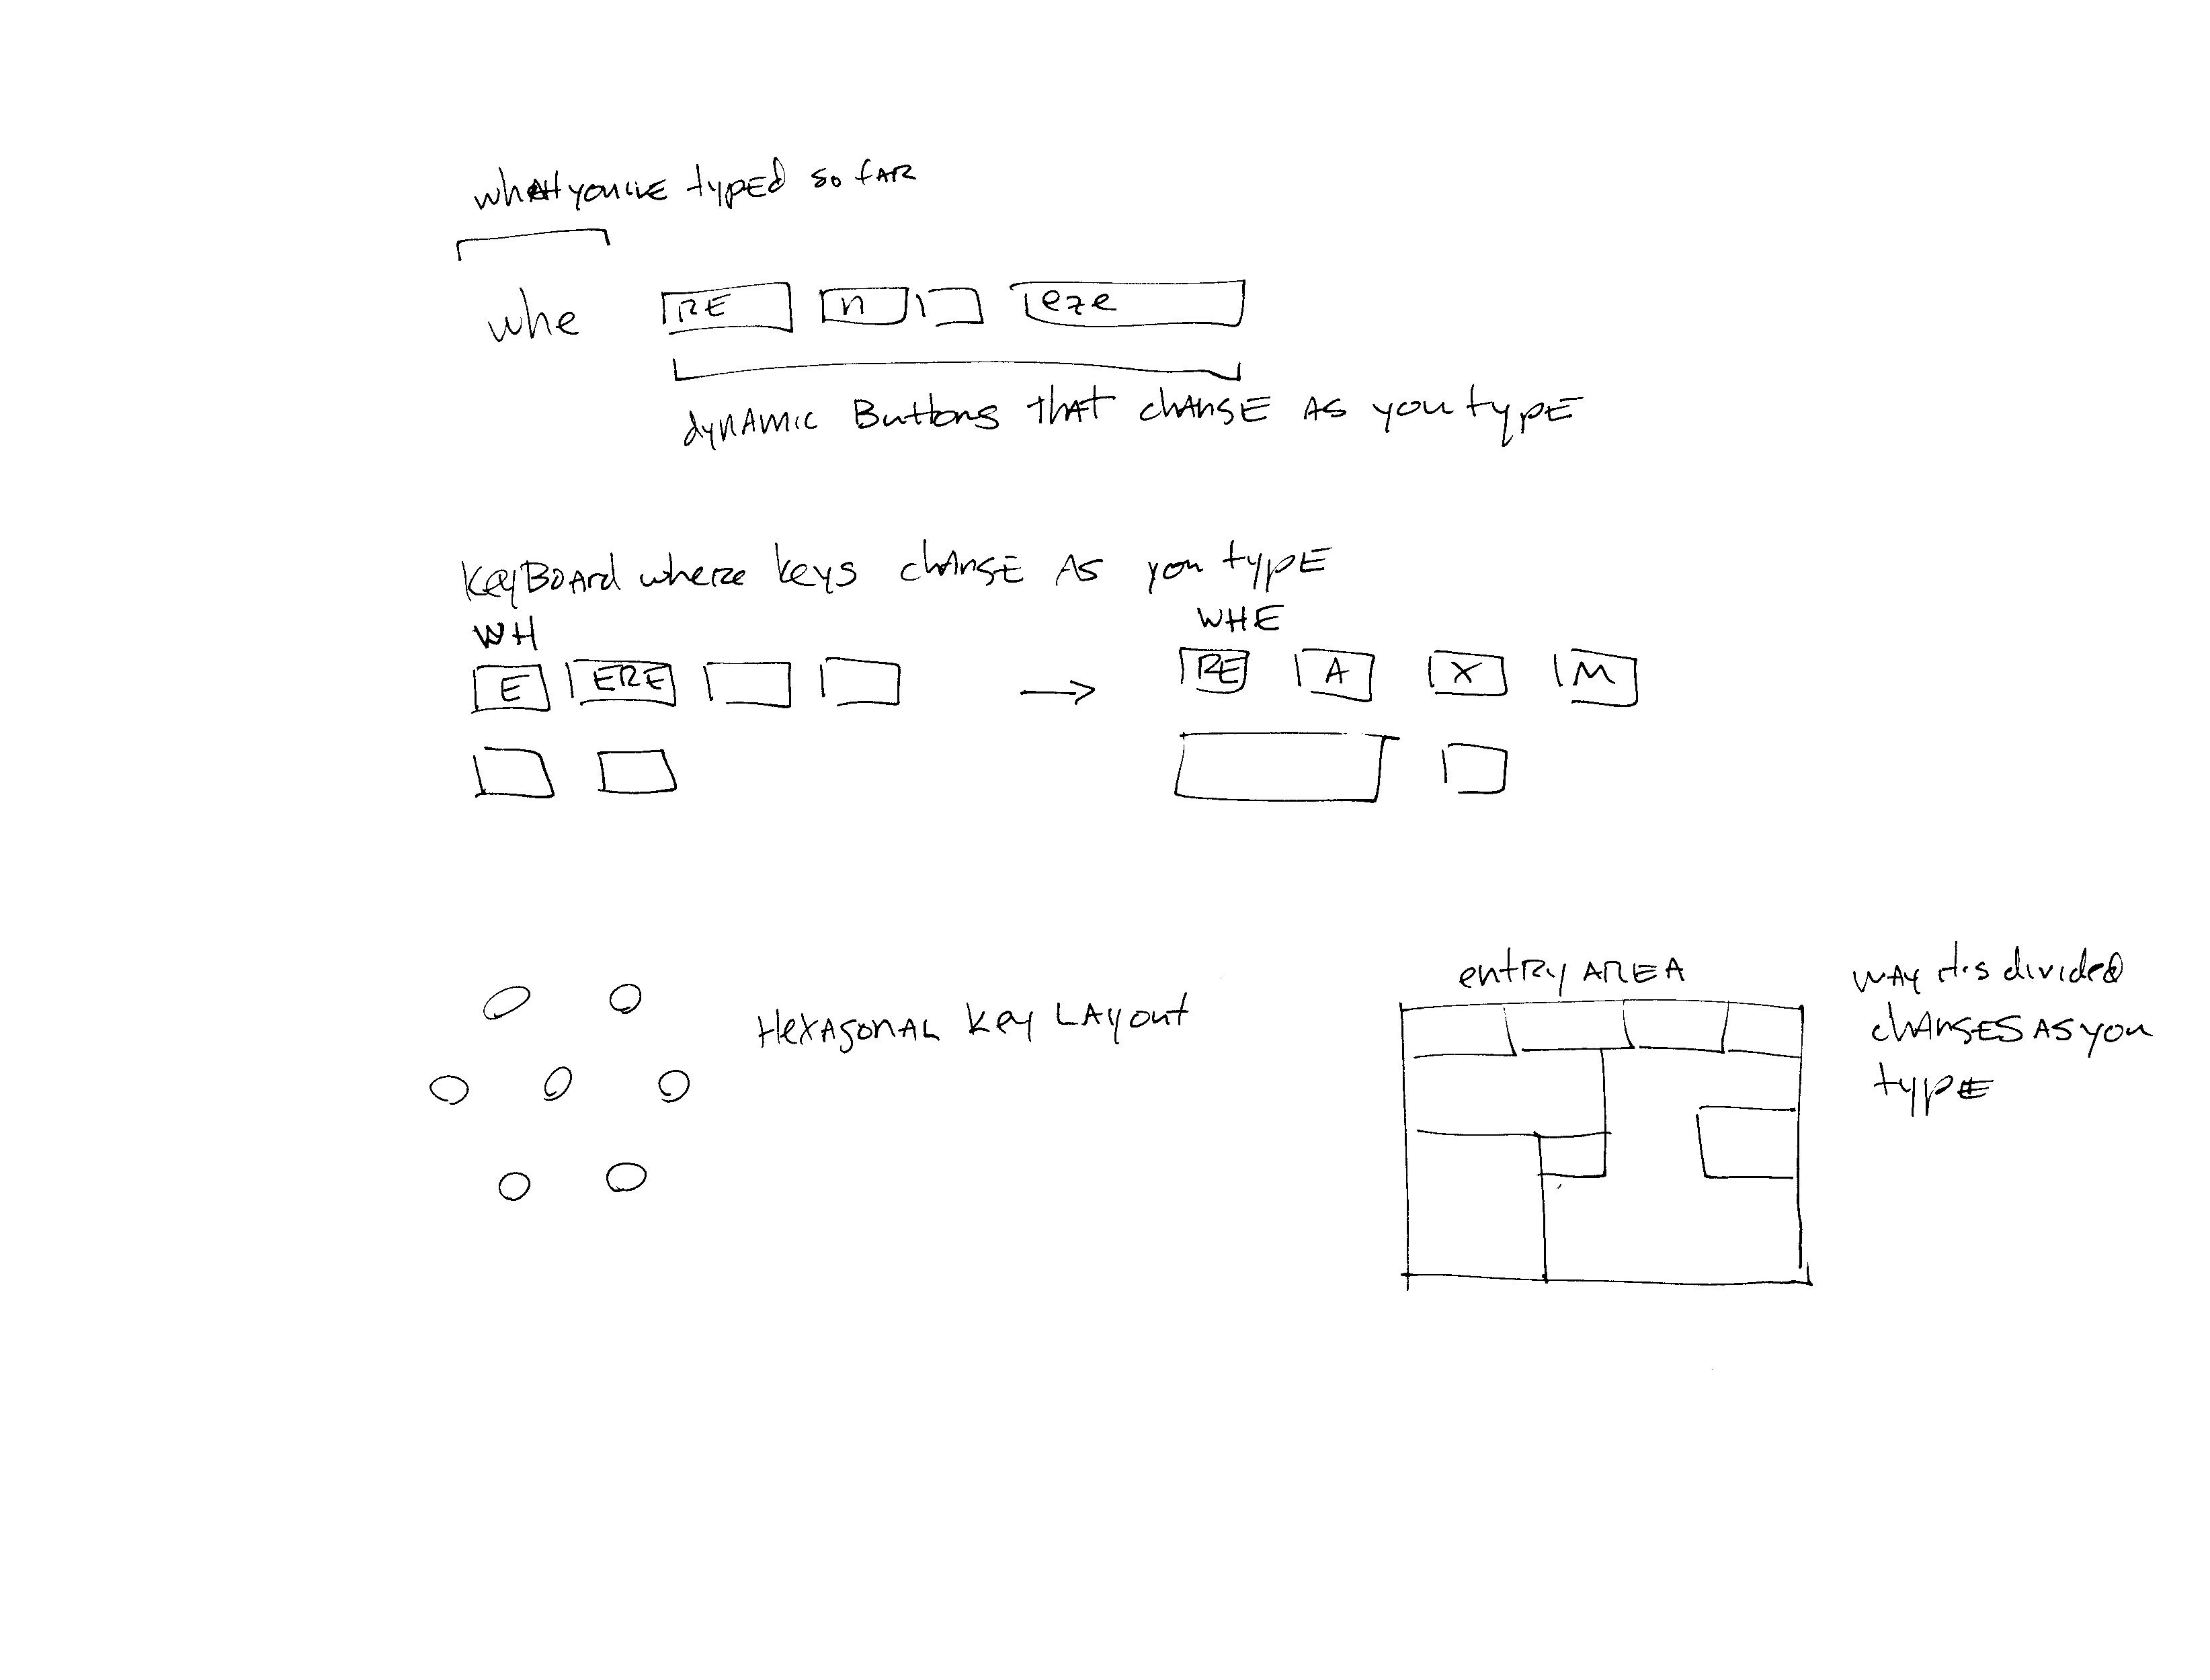 what you've typed so far
whe RE n eze
dynamic Buttons that change as you type
KeyBoard where keys change as you type
WH
WHE
E ERE
RE A X M
Hexagonal key Layout
entry AREA
way it's divided
changes as you
type